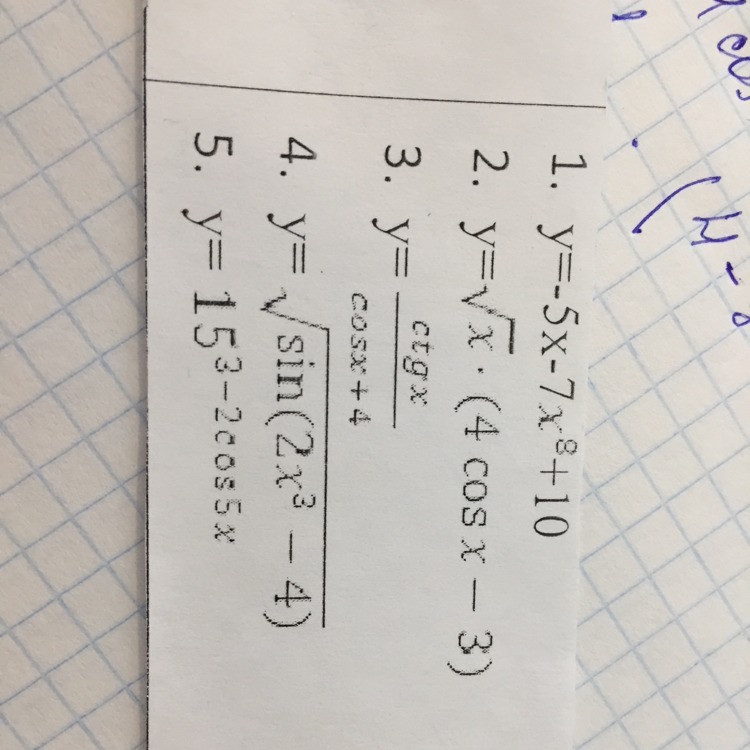 1. y=-5x-7x⁸+10
2. y=√x · (4 cos x − 3)
3. y= ctgx / cosx+4
4. y=√sin(2x³ − 4)
5. y= 15³⁻²ᶜᵒˢ⁵ˣ